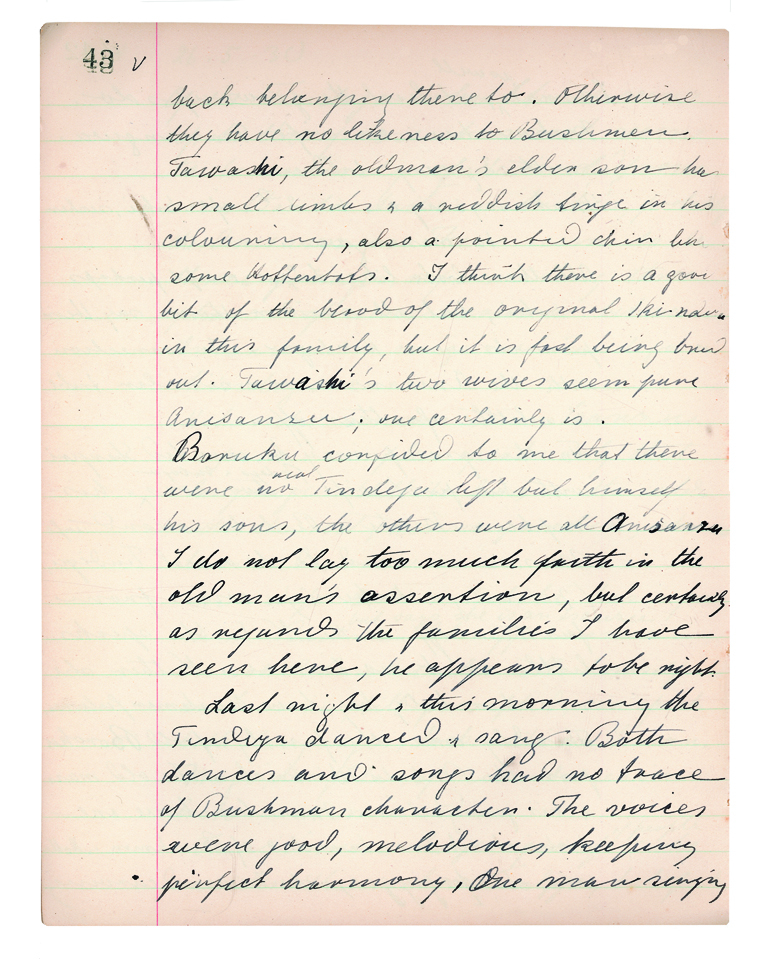 43 v
back belonging there to. Otherwise
they have no likeness to Bushmen.
Tawashi, the oldman's elder son ha
small limbs & a reddish tinge in his
colouring, also a pointed chin like
some Hottentots. I think there is a good
bit of the blood of the original
in this family, but it is fast being bred
out. Tawashi's two wives seem pure
Anisanzu; one certainly is.
Baruku confided to me that there
were no real Tindega left but himself
his sons, the others were all Anisanzu
I do not lay too much faith in the
old man's assertion, but certainly
as regards the families I have
seen here, he appears to be right.
Last night & this morning the
Tindega danced & sang. Both
dances and songs had no trace
of Bushman character. The voices
were good, melodious, keeping
perfect harmony, One man singing